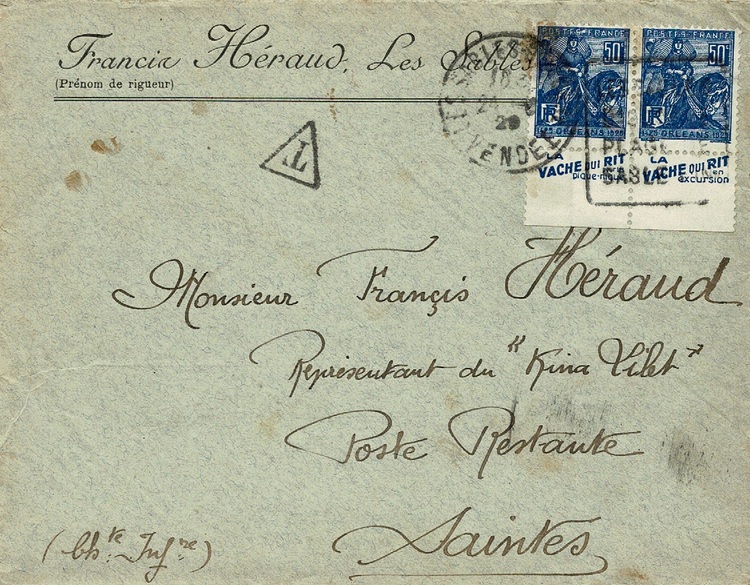 Francis Héraud, Les Sables
(Prénom de rigueur)
T
POSTES FRANCE POSTES FRANCE
50c 50c
RF RF
1429 ORLEANS 1929 1429 ORLEANS 1929
VENDEE
29
PLAGE
SABLE
LA VACHE QUI RIT pique-nique
LA VACHE QUI RIT en excursion
Monsieur Françis Héraud
Représentant du "Kina Lilet"
Poste Restante
Saintes
(Chte. Infre)